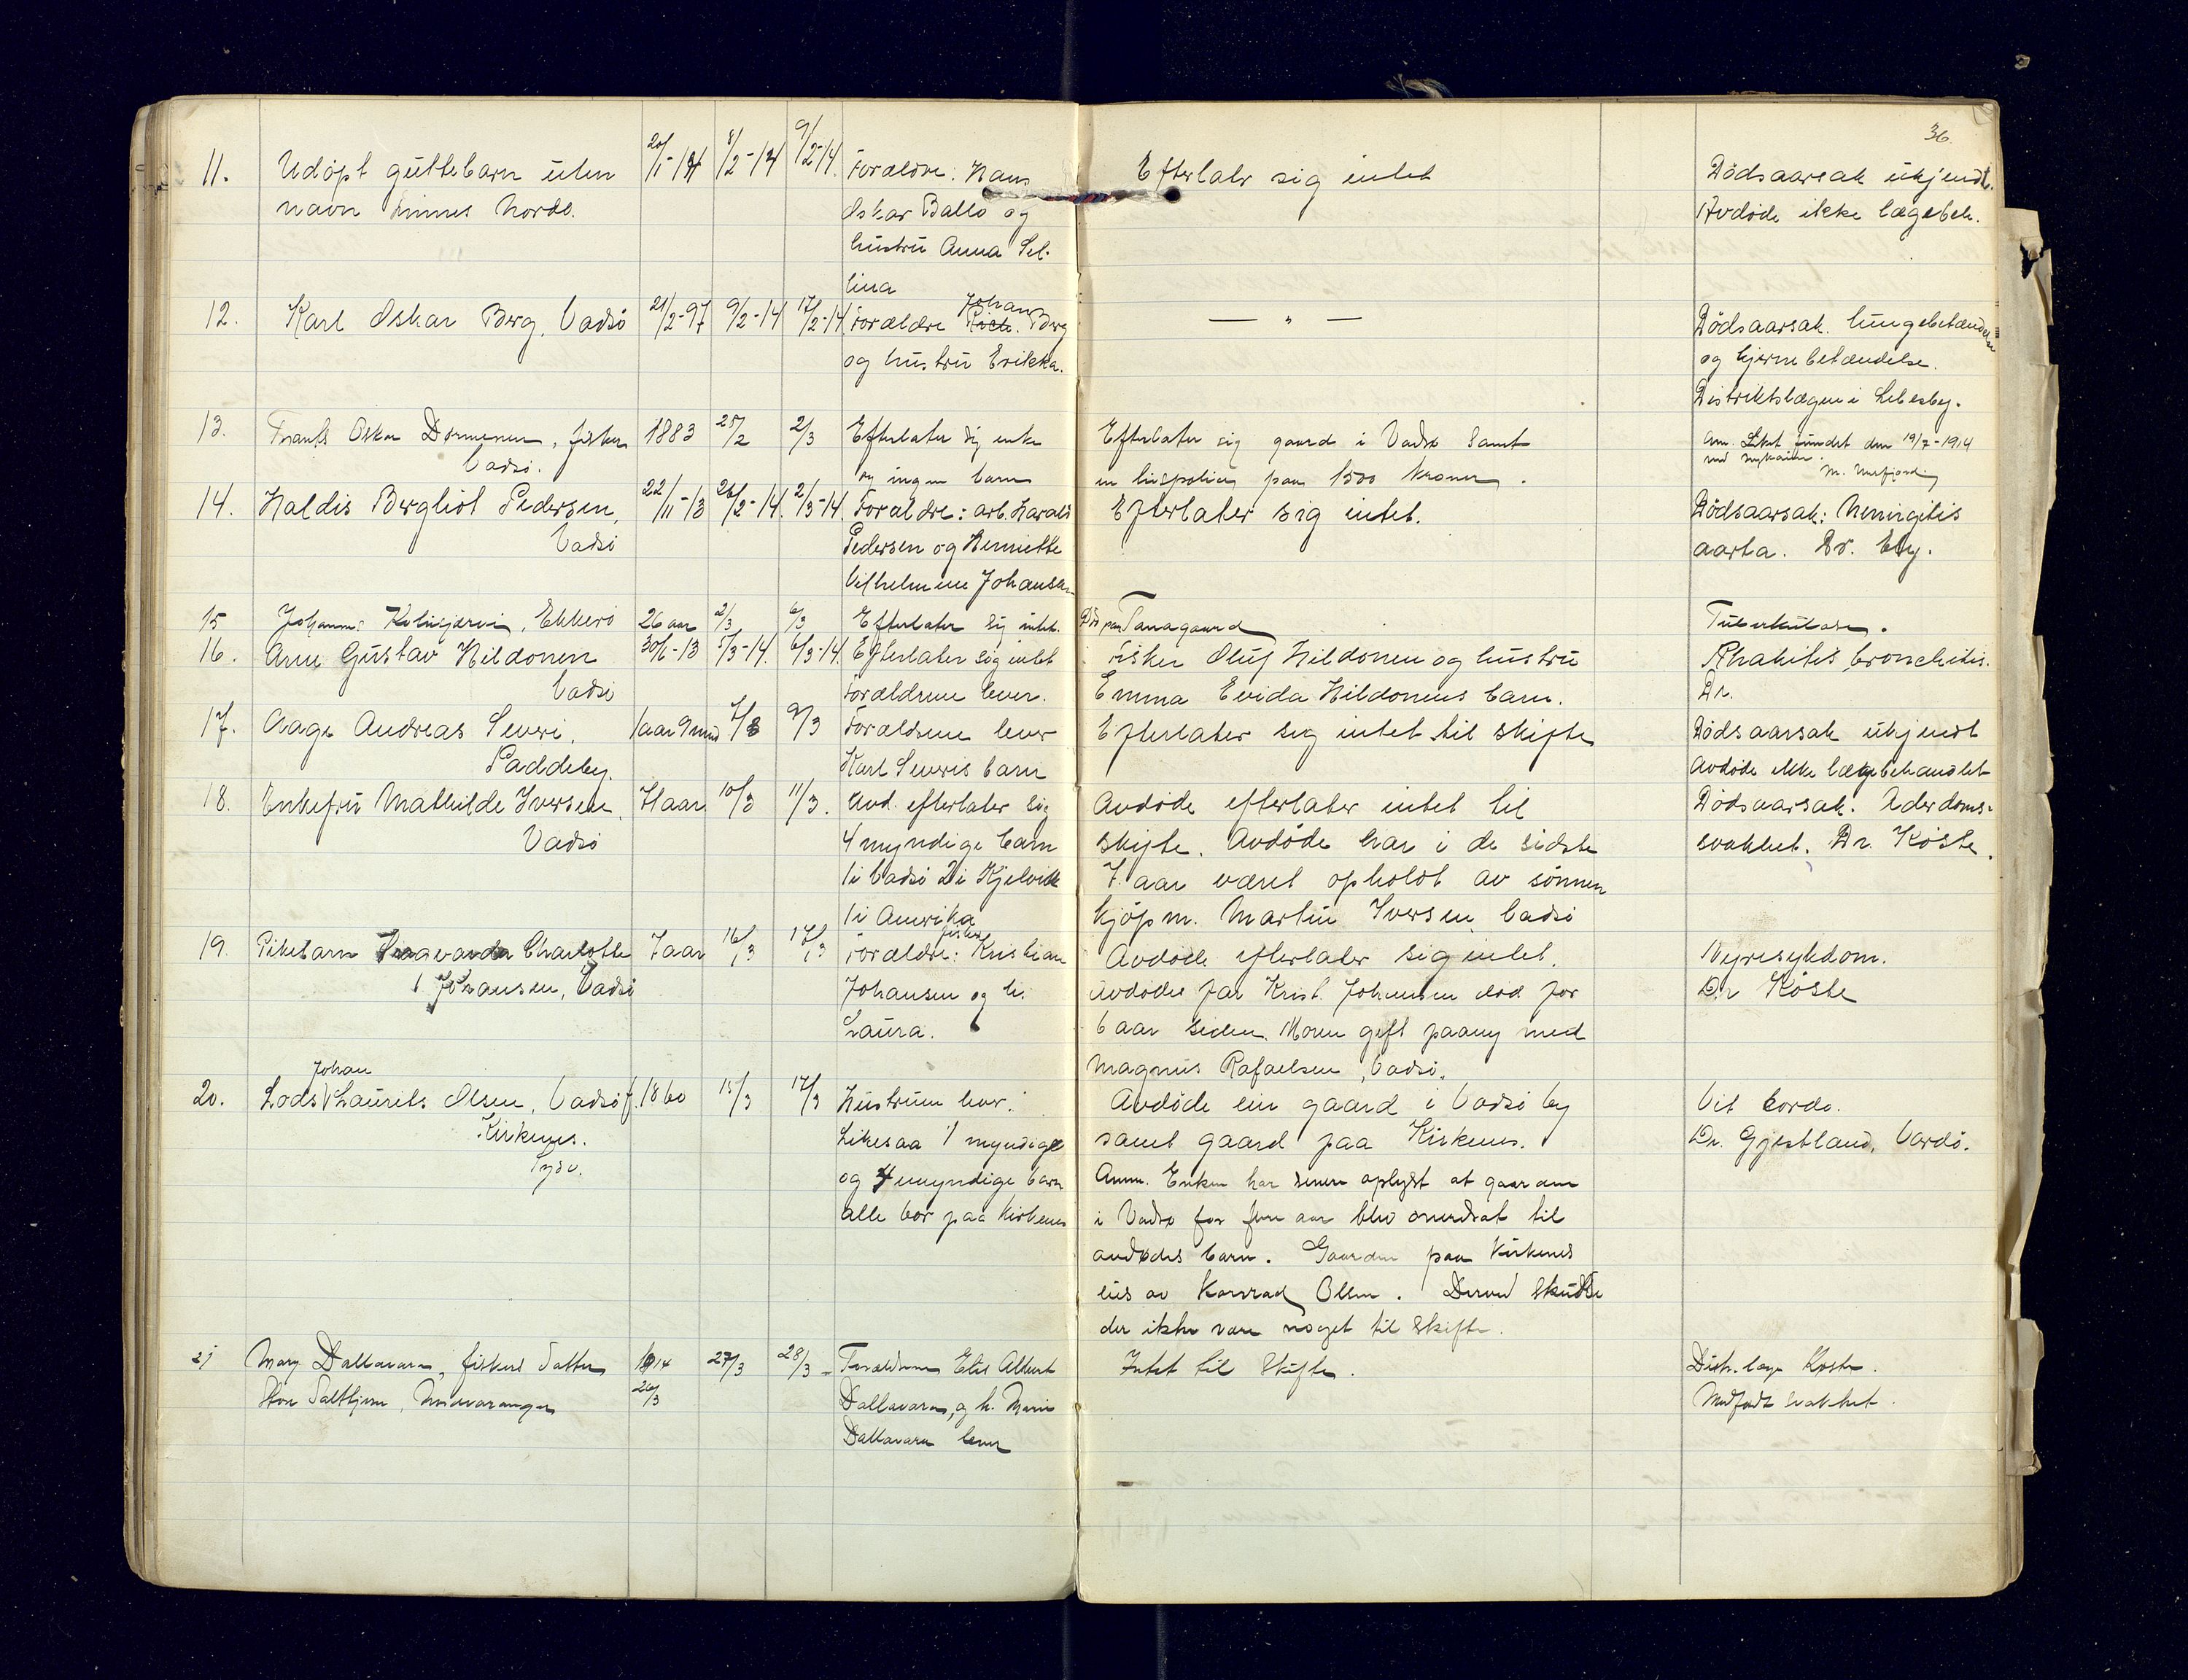 36.
11. Udöpt guttebarn uten 20/1-14 8/2-14 9/2-14. Forældre: Hans Efterlatr sig intet Dödsaarsak ukjendt.
navn Nords. Oskar Ballo og Avdöde ikke lægebeh.
hustru Anna Sel-
lina
12. Karl Oskar Berg, Vadsö 21/2-97 9/2-14 17/2-14 Forældre Johan Berg — " — Dödsaarsak. lungebetændelse
og hustru Erikka. og hjernebetændelse.
Distriktslægen i Lebesby.
13. Frants Oskar, fisker 1883 25/2 2/3 Efterlater sig enke Efterlater sig gaard i Vadsø samt Anm. Liket fundet den 19/7-1914
Vadsö. og ingen barn en livspolice paa 1500 kroner.
14. Haldis Bergliot Pedersen, 22/11-13 26/2-14. 2/3-14. Forældre: arb. Harald Efterlater sig intet. Dödsaarsak: Meningitis
Vadsö Pedersen og Henriette aarta. Dr.
Vilhelmine Johansen
15 Johannes, Ekkerö 26 aar 2/3 6/3 Efterlater sig intet. Död paa Tanagaard Tuberkulose.
16. Arne Gustav Hildonen 30/6-13 5/3-14. 6/3-14. Efterlater sig intet Fisker Oluf Hildonen og hustru Rhakitis bronchitis.
Vadsö Forældrene lever. Emma Evida Hildonens barn. Dr.
17. Aage Andreas Severi, 1 aar 9 mnd 7/3 9/3 Forældrene lever Efterlater sig intet til skifte Dödsaarsak ukjendt
Paddeby. Karl Severis barn Avdöde ikke lægebehandlet
18. Enkefru Mathilde Iversen, 71 aar 10/3 11/3. Avd. efterlater sig Avdöde efterlater intet til Dödsaarsak. Alderdoms-
Vadsö 4 myndige barn skifte. Avdöde har i de sidste svakhet. Dr. Köste.
1 i Vadsö 2 i Kjelvik 7 aar været opholdt av sönnen
1 i Amerika kjöpm. Martin Iversen, Vadsö
19. Pikebarn Charlotte 7 aar 16/3 17/3 Forældre: fisker Kristian Avdöde efterlater sig intet. Nyresykdom.
Johansen, Vadsö Johansen og h. Avdödes far Krist. Johansen död for Dr Köste
Laura. 6 aar siden. Moren gift paany med
Magnus Rafaelsen, Vadsö.
20. Lods Johan Laurits Olsen, Vadsö f. 1860 15/3 17/3 Hustruen lever. Avdöde eier gaard i Vadsö by Vit cordo.
Kirkenes. Likesaa 1 myndige samt gaard paa Kirkenes. Dr. Gjestland, Vardö.
Sydv. og 4 umyndige barn Anm. Enken har senere oplyst at gaarden
alle bor paa Kirkenes i Vadsø for flere aar blev overdrat til
avdødes barn. Gaarden paa Kirkenes
eies av Konrad Olsen. Derved skulde
der ikke være noget til skifte.
21 Mary Dallavara, fiskers datter 1914 27/3 28/3 Forældrene Elis Albert Intet til skifte. Distr. læge Køste.
Stor Salttjern, Nordvaranger 26/3 Dallavara, og h. Marie Medfødt svakhet.
Dallavara lever